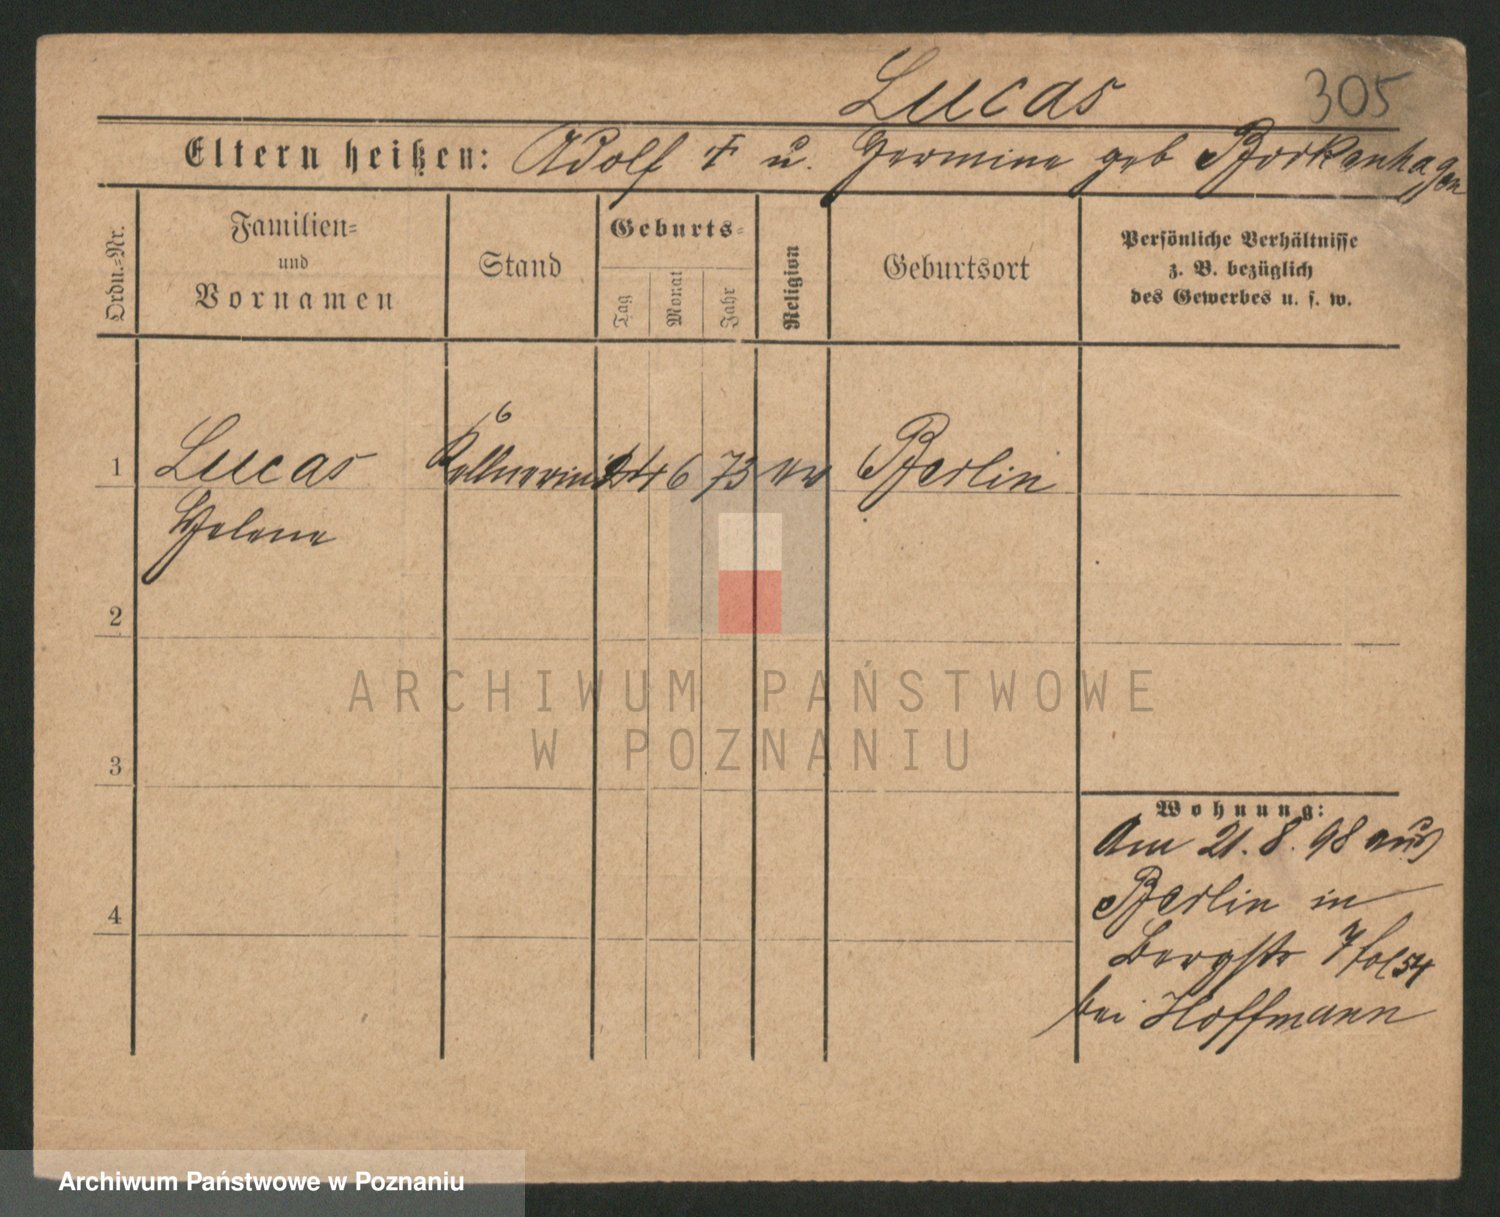 Lucas 305
Eltern heißen: Adolf † u. Hermine geb Borkenhagen
Ordn.-Nr.
Familien-
und
Vornamen
Stand
Geburts-
Tag
Monat
Jahr
Religion
Geburtsort
Persönliche Verhältnisse
z. B. bezüglich
des Gewerbes u. s. w.
6
1 Lucas Kellnerin 24 6 73 ev Berlin
Helene
2
3
4
Wohnung:
Am 21. 8. 98 aus
Berlin in
Bergstr 7 fol 54
bei Hoffmann
ARCHIWUM PAŃSTWOWE
W POZNANIU
Archiwum Państwowe w Poznaniu